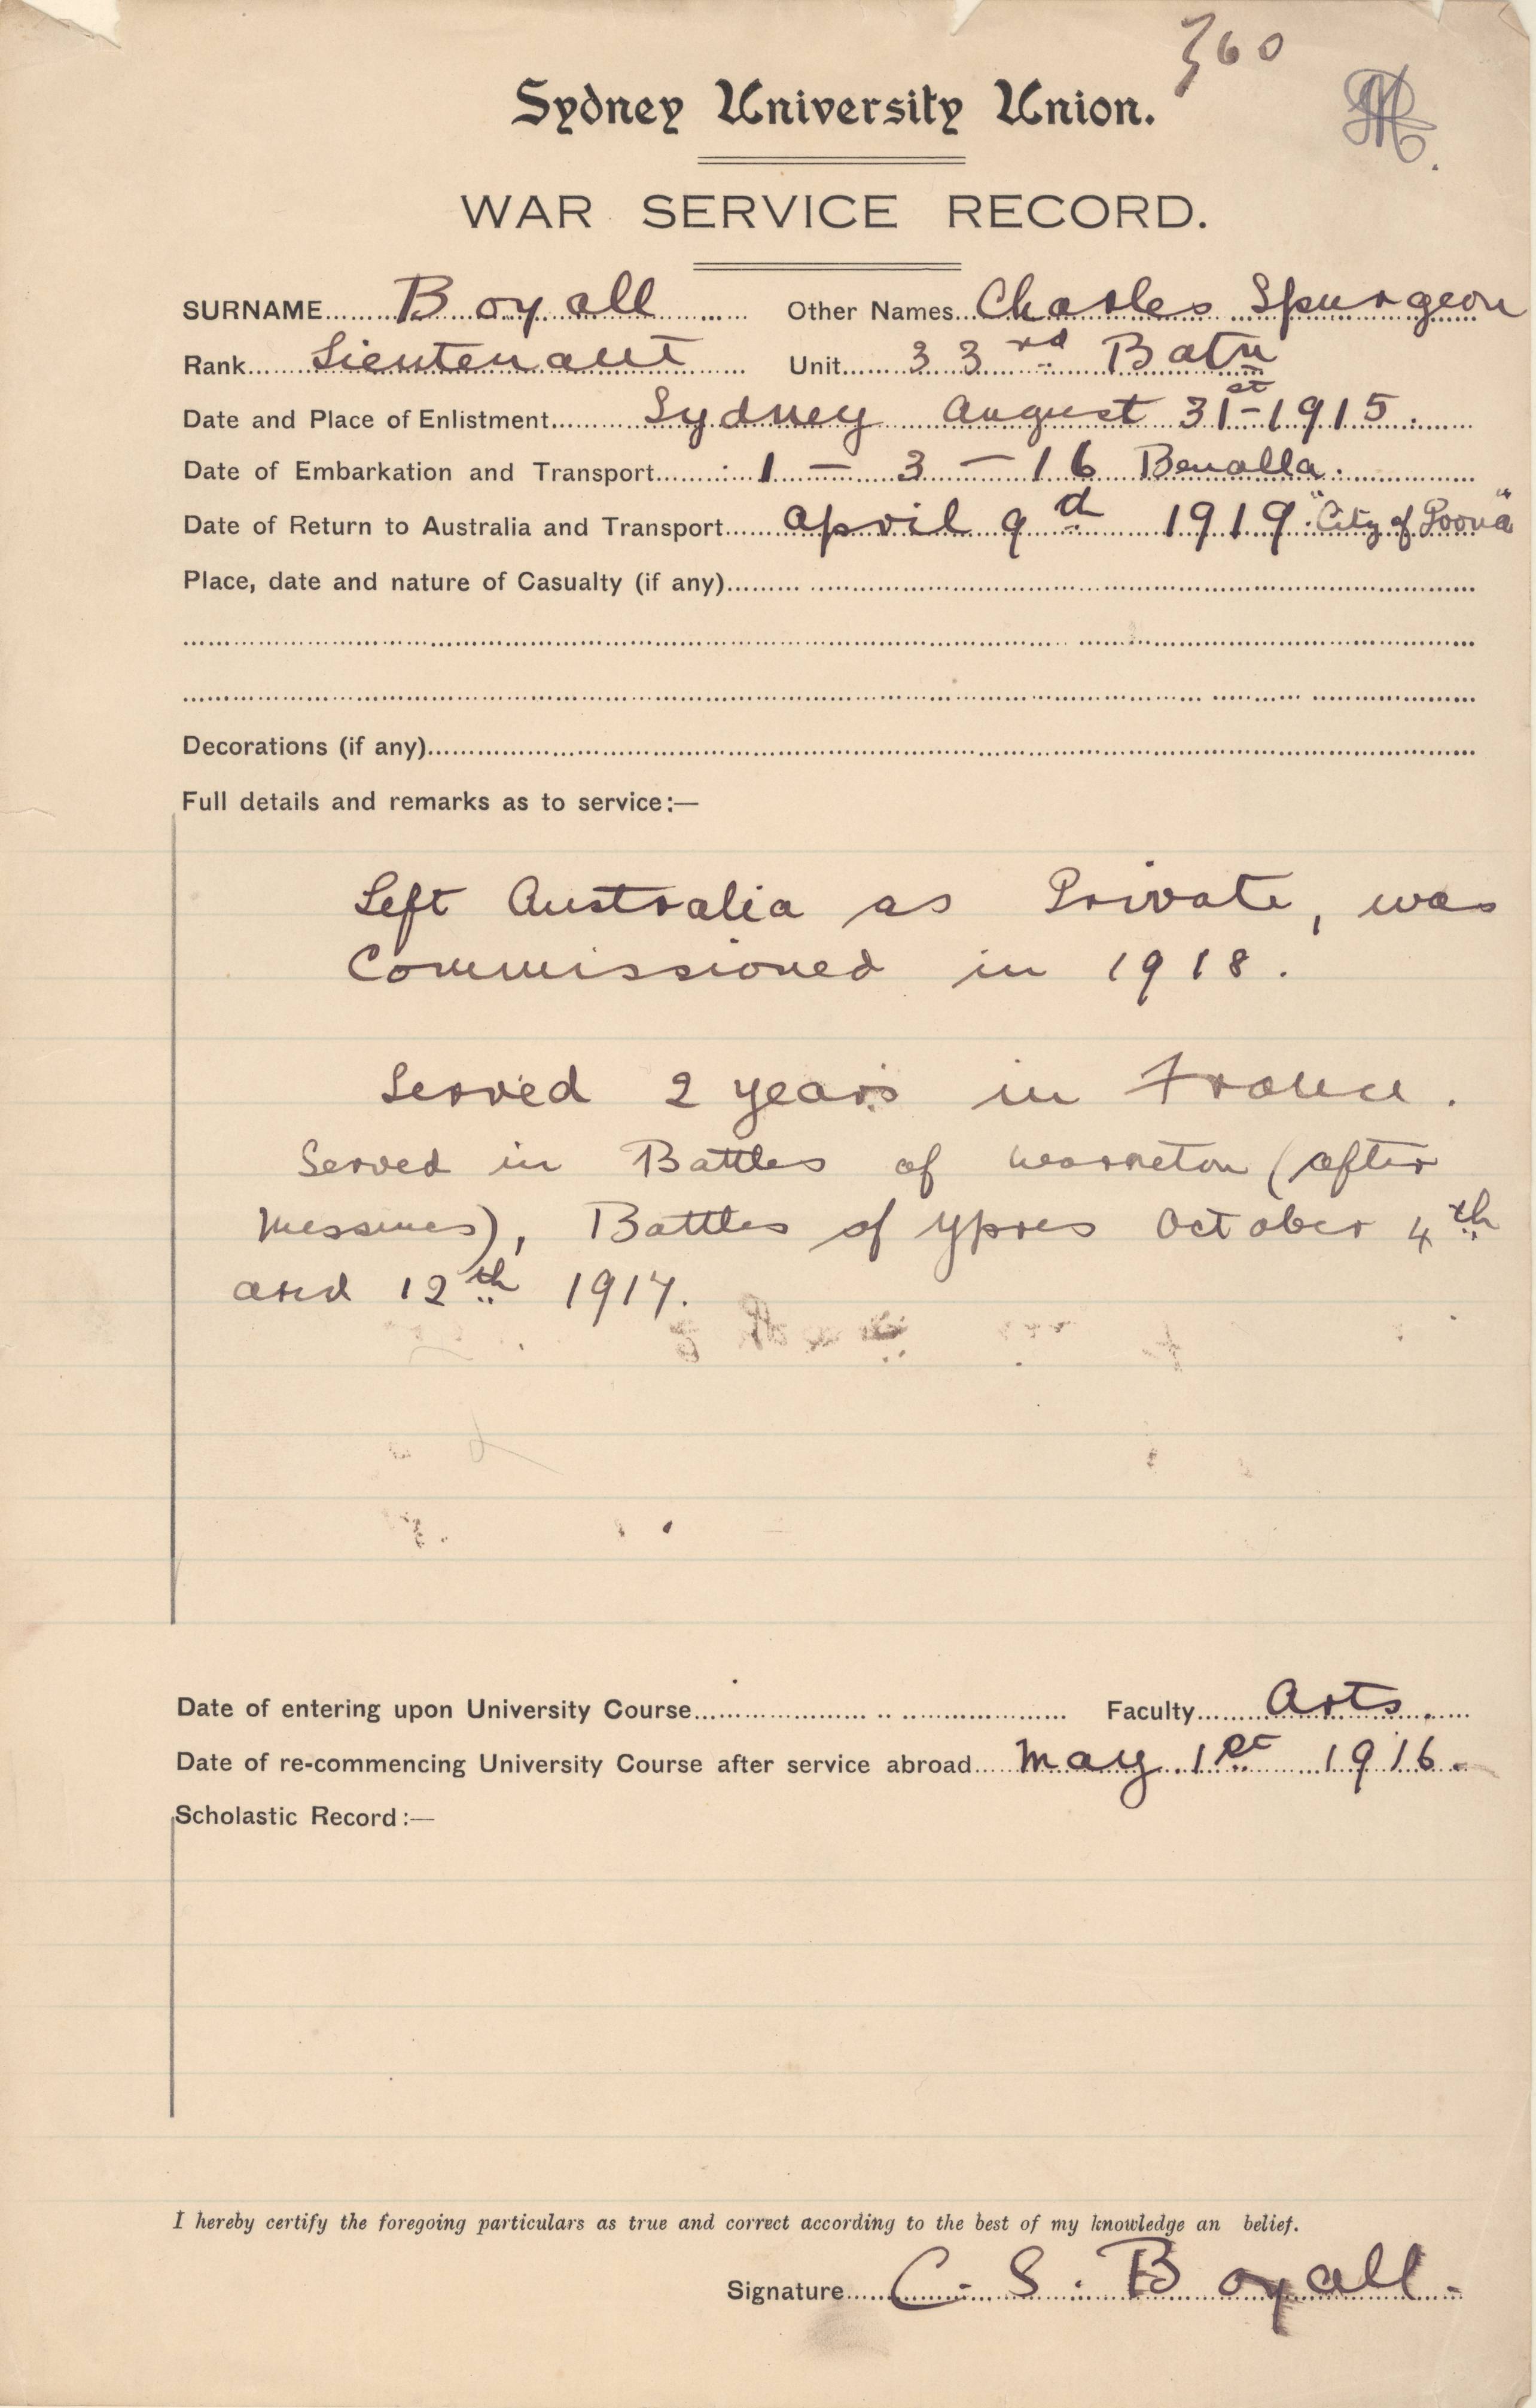 360
Sydney University Union.
WAR SERVICE RECORD.
SURNAME Boyall Other Names Charles Spurgeon
Rank Lieutenant Unit 33rd Batn
Date and Place of Enlistment Sydney August 31st 1915.
Date of Embarkation and Transport 1 — 3 — 16 Benalla.
Date of Return to Australia and Transport April 9d 1919 "City of Poona"
Place, date and nature of Casualty (if any)
Decorations (if any)
Full details and remarks as to service:—
Left Australia as Private, was
Commissioned in 1918.
Served 2 years in France.
Served in Battles of Warneton (after
Messines), Battles of Ypres October 4th
and 12th 1917.
Date of entering upon University Course Faculty Arts.
Date of re-commencing University Course after service abroad May 1st 1916.
Scholastic Record:—
I hereby certify the foregoing particulars as true and correct according to the best of my knowledge an belief.
Signature C. S. Boyall.